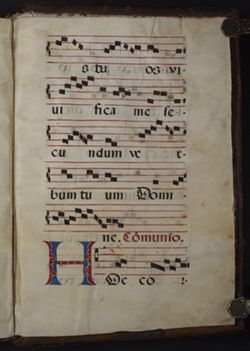 s tu os vi-
ui fica me se-
cu ndum ve r-
bum tu um Domi
ne. Cõmunio.
H Oc co r-